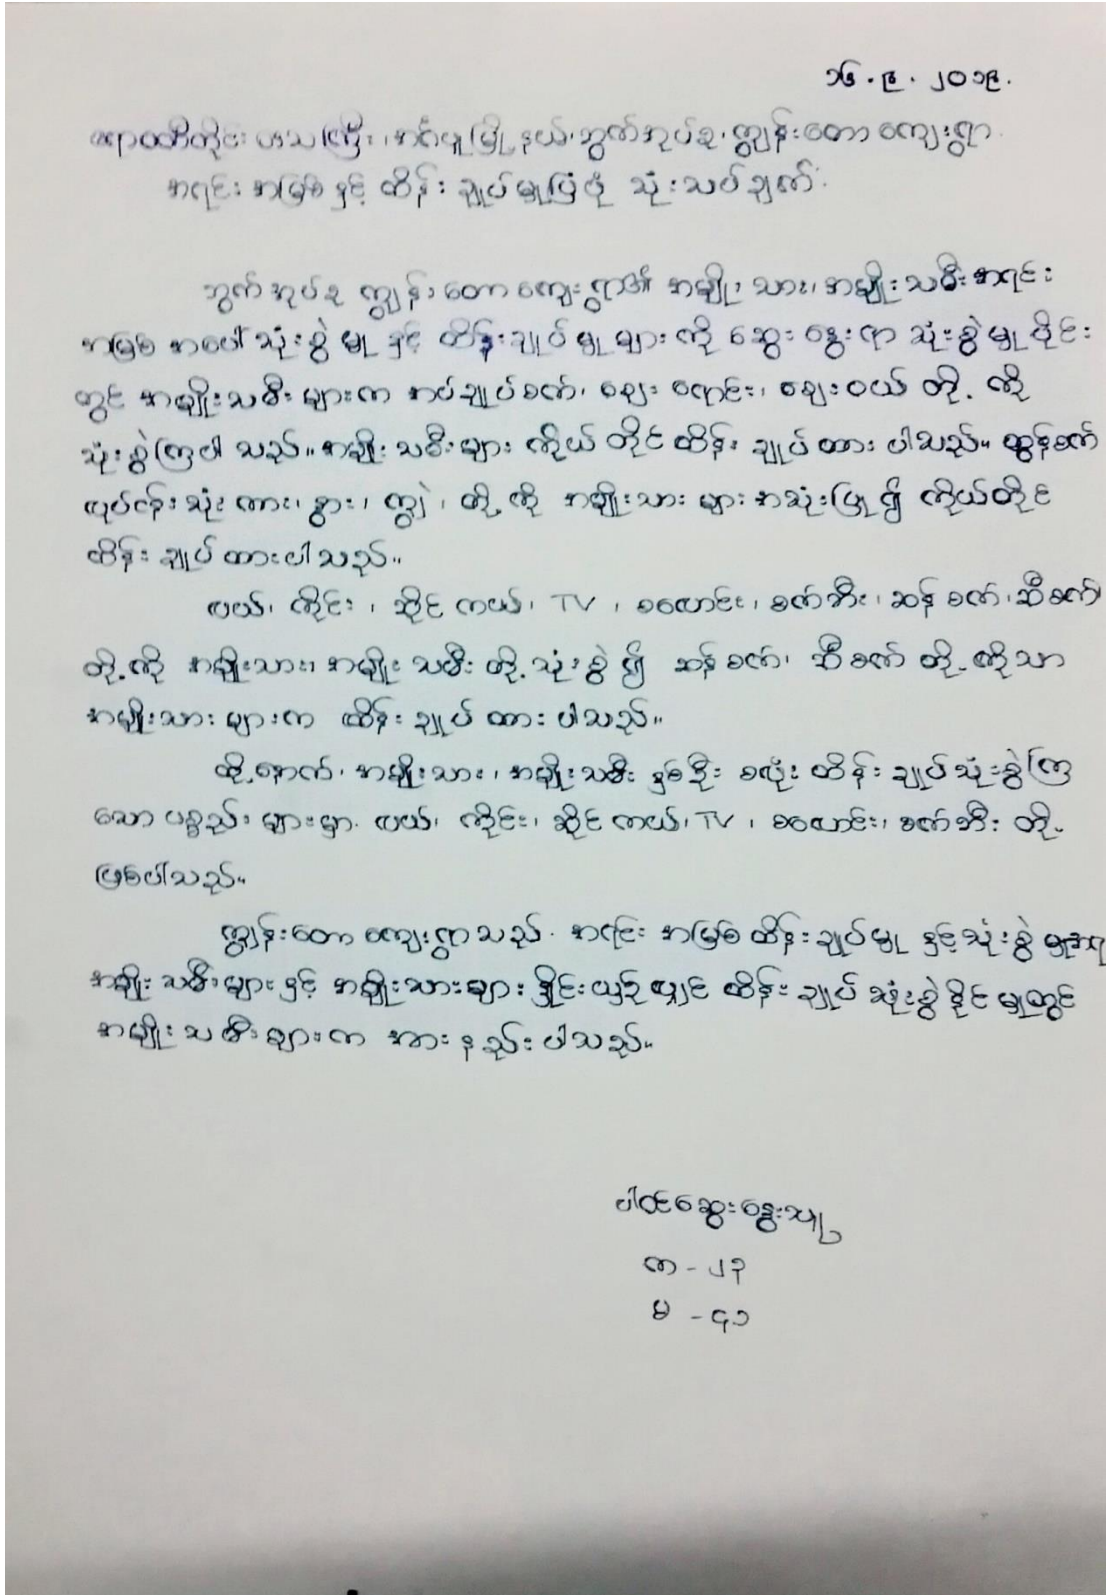 ၁၆.၉.၂၀၁၉.
ဧရာဝတီတိုင်း ဒေသကြီး၊ အင်္ဂပူမြို့နယ်၊ ဘွက်အုပ်စု၊ ကျွန်းတောကျေးရွာ
အရင်းအမြစ်နှင့် ထိန်းချုပ်မှုပြပုံ သုံးသပ်ချက်.
ဘွက်အုပ်စု ကျွန်းတောကျေးရွာ၏ အမျိုးသား၊ အမျိုးသမီး အရင်း
အမြစ် အပေါ် သုံးစွဲမှု နှင့် ထိန်းချုပ်မှုများကို ဆွေးနွေးရာ သုံးစွဲမှုပိုင်း
တွင် အမျိုးသမီးများက အပ်ချုပ်စက်၊ ဈေးရောင်း၊ ဈေးဝယ် တို့ကို
သုံးစွဲကြပါသည်။ အမျိုးသမီးများ ကိုယ်တိုင်ထိန်းချုပ်ထားပါသည်။ ထွန်စက်
လုပ်ငန်းသုံးကား၊ နွား၊ ကျွဲ၊ တို့ကို အမျိုးသားများ အသုံးပြု၍ ကိုယ်တိုင်
ထိန်းချုပ်ထားပါသည်။
လယ်၊ ကိုင်း၊ ဆိုင်ကယ်၊ TV၊ စလောင်း၊ စက်ဘီး၊ ဆန်စက်၊ ဆီစက်
တို့ကို အမျိုးသား၊ အမျိုးသမီးတို့သုံးစွဲ၍ ဆန်စက်၊ ဆီစက် တို့ကိုသာ
အမျိုးသားများက ထိန်းချုပ်ထားပါသည်။
ထို့နောက်၊ အမျိုးသား၊ အမျိုးသမီး နှစ်ဦးစလုံး ထိန်းချုပ်သုံးစွဲကြ
သော ပစ္စည်းများမှာ လယ်၊ ကိုင်း၊ ဆိုင်ကယ်၊ TV၊ စလောင်း၊ စက်ဘီး တို့
ဖြစ်ပါသည်။
ကျွန်းတောကျေးရွာသည်. အရင်းအမြစ်ထိန်းချုပ်မှု နှင့်သုံးစွဲ မှုအရ
အမျိုးသမီးများ နှင့် အမျိုးသားများ နှိုင်းယှဉ်လျှင် ထိန်းချုပ် သုံးစွဲနိုင်မှုတွင်
အမျိုးသမီးများက အားနည်းပါသည်။
ပါဝင်ဆွေးနွေးသူ
က - ၂၃
မ - ၄၁